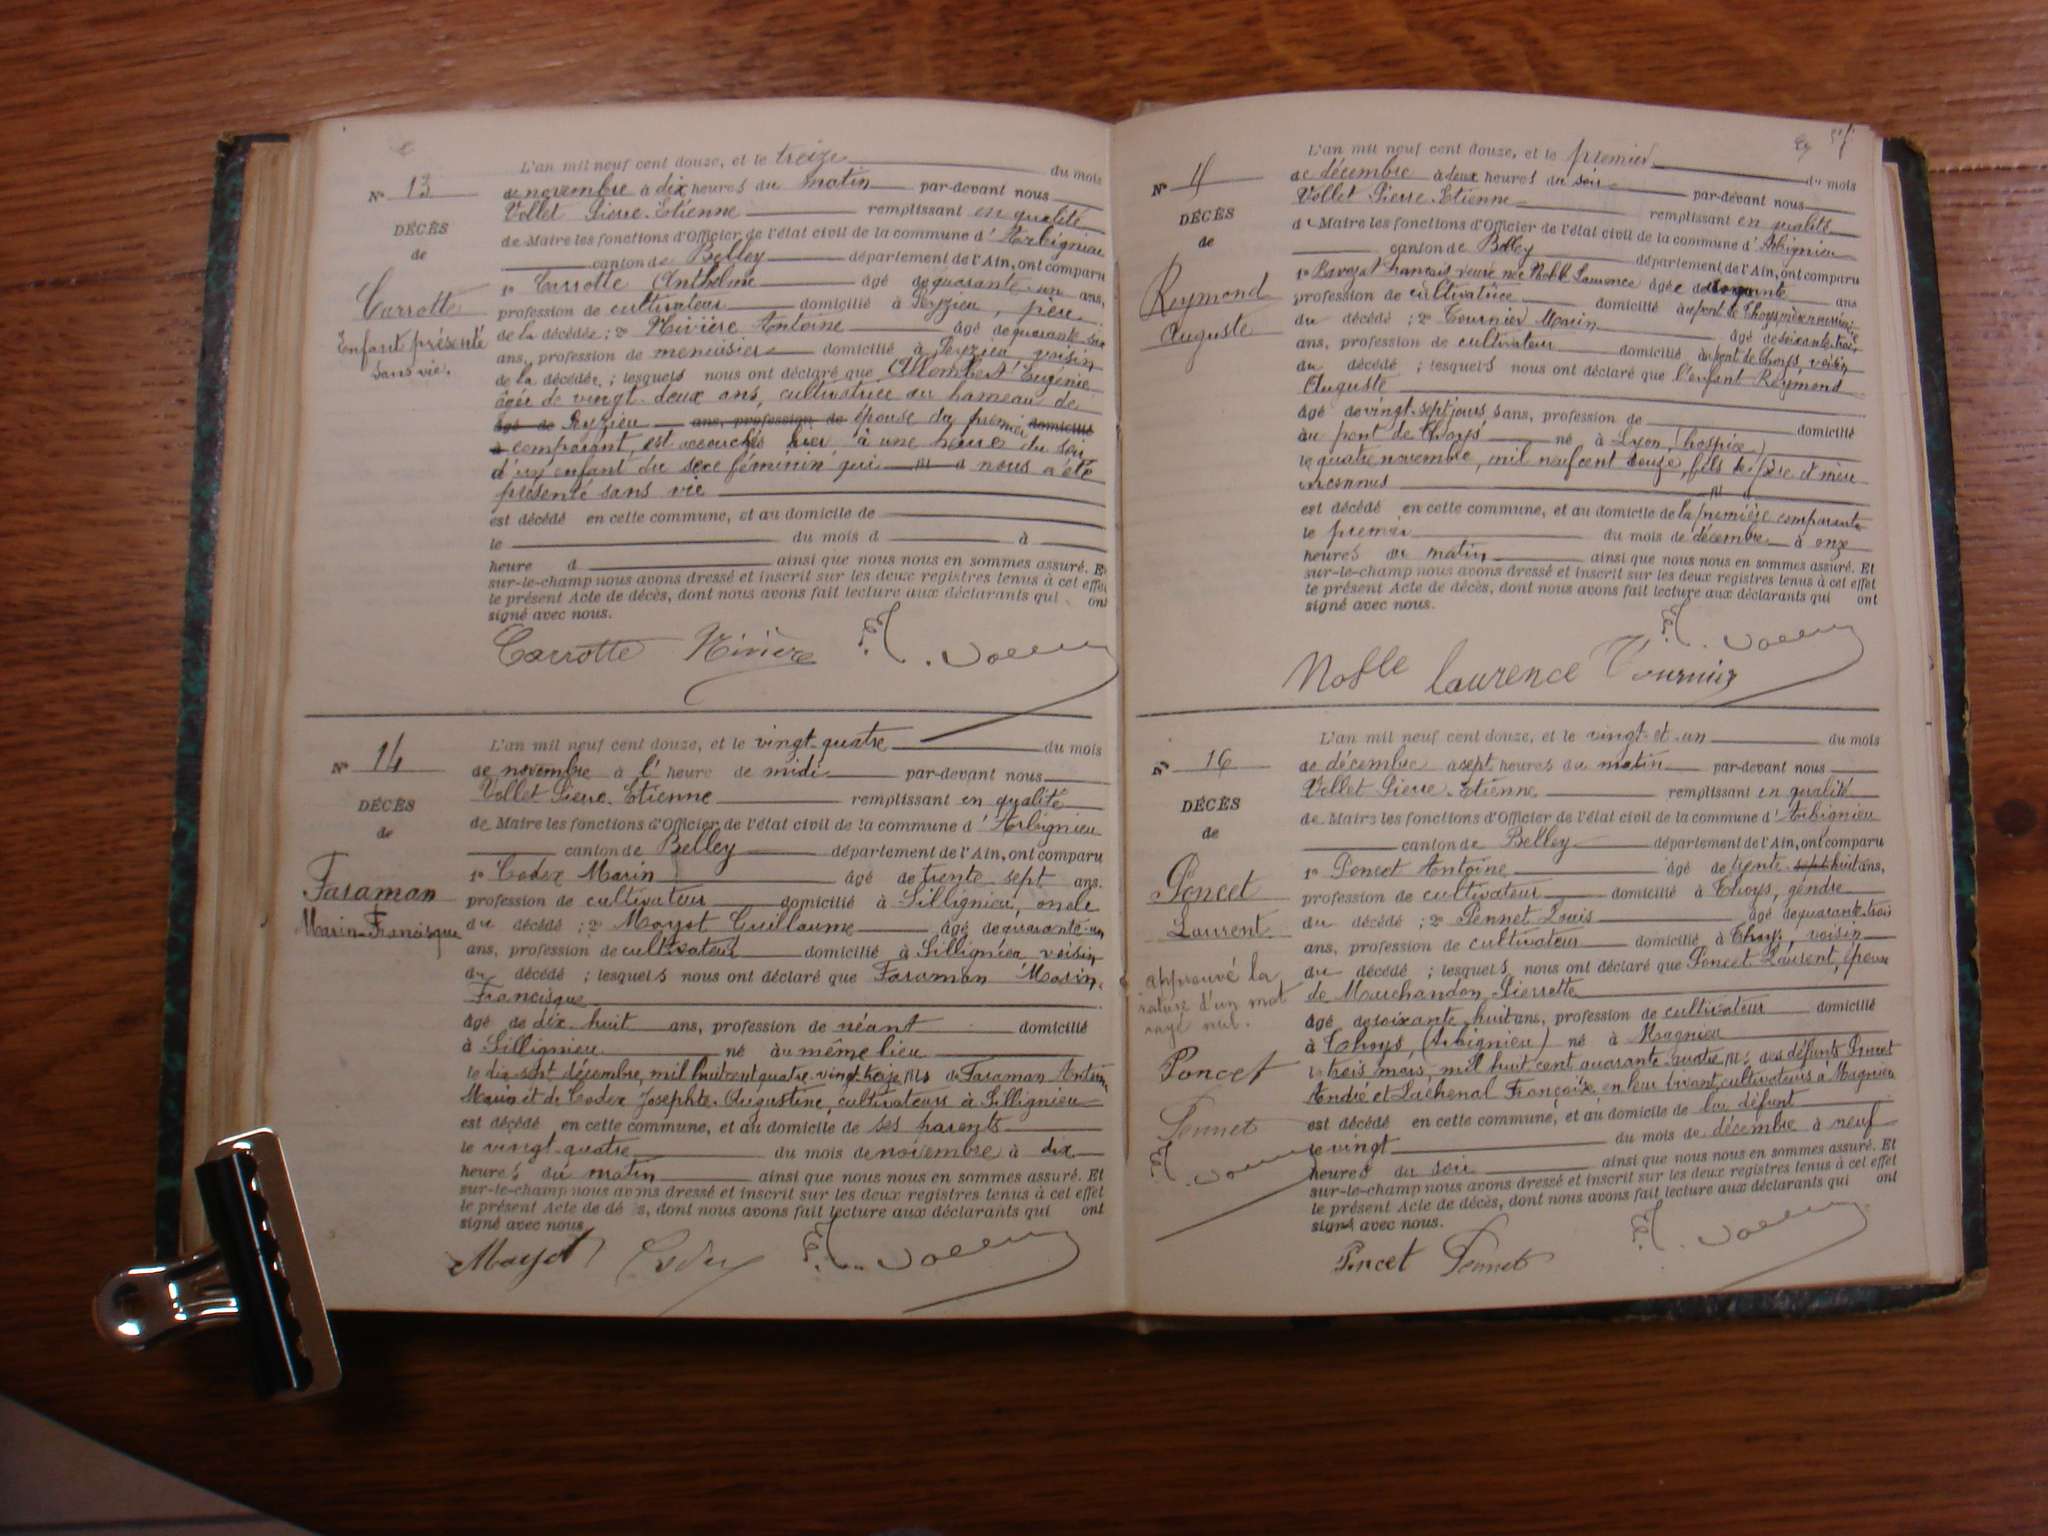 L'an mil neuf cent douze, et le treize du mois
N° 13
de novembre à dix heures du matin par-devant nous
Vollet Pierre-Etienne remplissant en qualité
DÉCÈS
de Maire les fonctions d'Officier de l'état civil de la commune d'Arbignieu
de
canton de Belley département de l'Ain, ont comparu
Carrotte
1° Carrotte Anthelme âgé de quarante-un ans,
profession de cultivateur domicilié à Peyzieu, père
Enfant présenté
de la décédée ; 2° Rivière Antoine âgé de quarante-six
sans vie.
ans, profession de menuisier domicilié à Peyzieu, voisin
de la décédée ; lesquels nous ont déclaré que Allombert Eugénie
âgée de vingt-deux ans, cultivatrice au hameau de
âgé de Peyzieu ans, profession de épouse du premier domicilié
à comparant, est accouchée hier à une heure du soir
d'un enfant du sexe féminin qui nous a été
présenté sans vie
est décédé en cette commune, et au domicile de
le du mois d à
heure d ainsi que nous nous en sommes assuré. Et
sur-le-champ nous avons dressé et inscrit sur les deux registres tenus à cet effet
le présent Acte de décès, dont nous avons fait lecture aux déclarants qui ont
signé avec nous.
Carrotte Rivière
L'an mil neuf cent douze, et le vingt-quatre du mois
N° 14
de novembre à l'heure de midi par-devant nous
Vollet Pierre-Etienne remplissant en qualité
DÉCÈS
de Maire les fonctions d'Officier de l'état civil de la commune d'Arbignieu
de
canton de Belley département de l'Ain, ont comparu
Faraman
1° Codex Marin âgé de trente-sept ans.
profession de cultivateur domicilié à Sillignieu, oncle
Marin-Francisque
du décédé ; 2° Mayot Guillaume âgé de quarante-un
ans, profession de cultivateur domicilié à Sillignieu voisin
du décédé ; lesquels nous ont déclaré que Faraman Marin-
Francisque
âgé de dix-huit ans, profession de néant domicilié
à Sillignieu né au même lieu
le dix-sept décembre, mil huit cent quatre-vingt-treize fils de Faraman Anthme
Marin et de Codex Josephte-Augustine, cultivateurs à Sillignieu
est décédé en cette commune, et au domicile de ses parents
le vingt-quatre du mois de novembre à dix
heures du matin ainsi que nous nous en sommes assuré. Et
sur-le-champ nous avons dressé et inscrit sur les deux registres tenus à cet effet
le présent Acte de décès, dont nous avons fait lecture aux déclarants qui ont
signé avec nous
Mayot Codex
L'an mil neuf cent douze, et le premier du mois
N°
de décembre à deux heures du soir par-devant nous
Vollet Pierre-Etienne remplissant en qualité
DÉCÈS
de Maire les fonctions d'Officier de l'état civil de la commune d'Arbignieu
de
canton de Belley département de l'Ain, ont comparu
Reymond
1° français veuve née Noble Laurence âgée de ans
Auguste
profession de cultivatrice domicilié au pont de Thoys
du décédé ; 2° Tournier Marin âgé de soixante-trois
ans, profession de cultivateur domicilié au pont de Thoys, voisin
du décédé ; lesquels nous ont déclaré que l'enfant Reymond
Auguste
âgé de vingt-sept jours sans, profession de domicilié
au pont de Thoys né à Lyon (hospice)
le quatre novembre, mil neuf cent douze, fils de père et mère
inconnus
est décédé en cette commune, et au domicile de la première comparante
le premier du mois de décembre à onze
heures du matin ainsi que nous nous en sommes assuré. Et
sur-le-champ nous avons dressé et inscrit sur les deux registres tenus à cet effet
le présent Acte de décès, dont nous avons fait lecture aux déclarants qui ont
signé avec nous.
Noble laurence Tournier
L'an mil neuf cent douze, et le vingt-et-un du mois
N° 16
de décembre à sept heures du matin par-devant nous
Vollet Pierre-Etienne remplissant en qualité
DÉCÈS
de Maire les fonctions d'Officier de l'état civil de la commune d'Arbignieu
de
canton de Belley département de l'Ain, ont comparu
Poncet
1° Poncet Antoine âgé de trente-sept huit ans,
profession de cultivateur domicilié à Thoys, gendre
Laurent
du décédé ; 2° Pennet Louis âgé de quarante-trois
ans, profession de cultivateur domicilié à Thoys, voisin
approuvé la
du décédé ; lesquels nous ont déclaré que Poncet Laurent, époux
rature d'un mot
de Marchandon Pierrette
rayé nul.
âgé de soixante-huit ans, profession de cultivateur domicilié
à Thoys, (Arbignieu) né à Magnieu
Poncet
le trois mars, mil huit cent quarante-quatre, fils des défunts Poncet
André et Lachenal Françoise, en leur vivant, cultivateurs à Magnieu
Pennet
est décédé en cette commune, et au domicile de défunt
le vingt du mois de décembre à neuf
heures du soir ainsi que nous nous en sommes assuré. Et
sur-le-champ nous avons dressé et inscrit sur les deux registres tenus à cet effet
le présent Acte de décès, dont nous avons fait lecture aux déclarants qui ont
signé avec nous.
Poncet Pennet